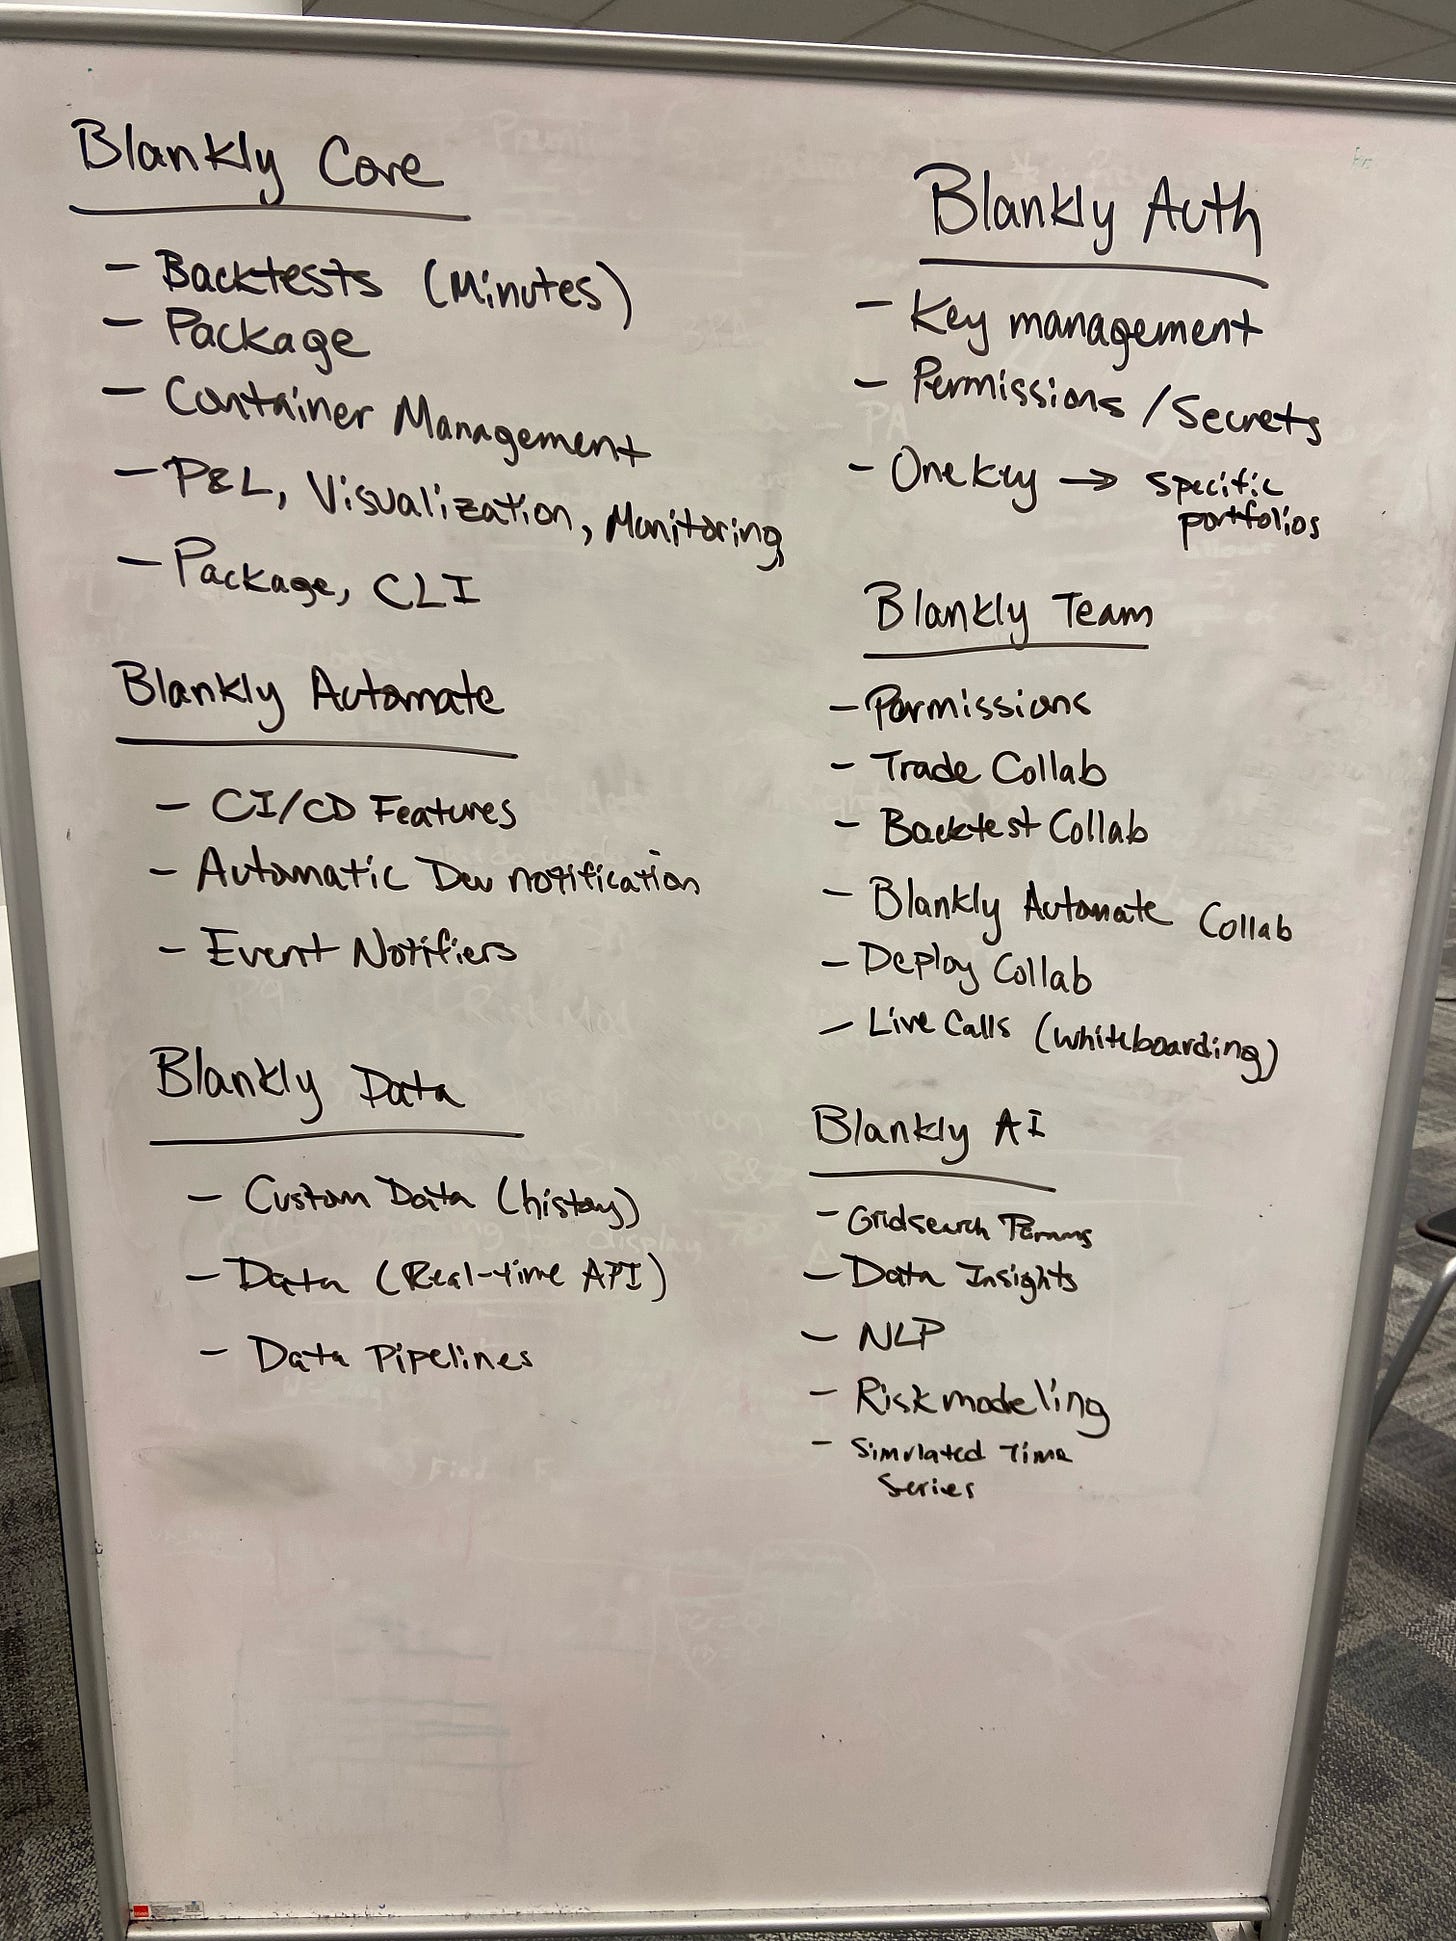 Blankly Core
- Backtests (Minutes)
- Package
- Container Management
- P&L, Visualization, Monitoring
- Package, CLI
Blankly Automate
- CI/CD Features
- Automatic Dev notification
- Event Notifiers
Blankly Data
- Custom Data (history)
- Data (Real-time API)
- Data Pipelines
Blankly Auth
- Key management
- Permissions / Secrets
- One Key → specific
portfolios
Blankly Team
- Permissions
- Trade Collab
- Backtest Collab
- Blankly Automate Collab
- Deploy Collab
- Live Calls (whiteboarding)
Blankly AI
- Gridsearch Params
- Data Insights
- NLP
- Risk modeling
- Simulated Time
Series